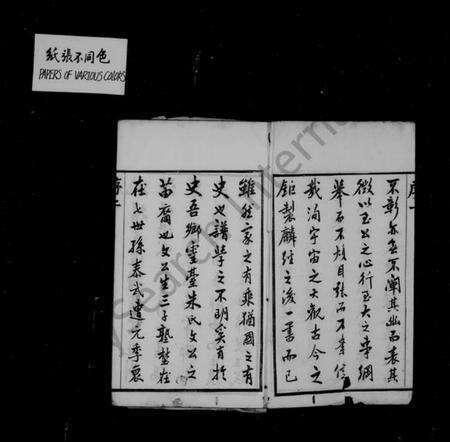 紙張不同色
PAPERS OF VARIOUS COLORS
序一
不彰亦無不闡其幽而表其
微以至公之心行至大之事綱
舉而不頗目張而不紊信
哉洵宇宙之大觀古今之
鉅製麟經之後一書而已
雖然家之有乘猶國之有
史也譜學之不明奚有於
史吾鄉靈臺朱氏文公之
苗裔也文公生三子塾埜在
在七世孫泰武遭元季衰
序二
Search Internat